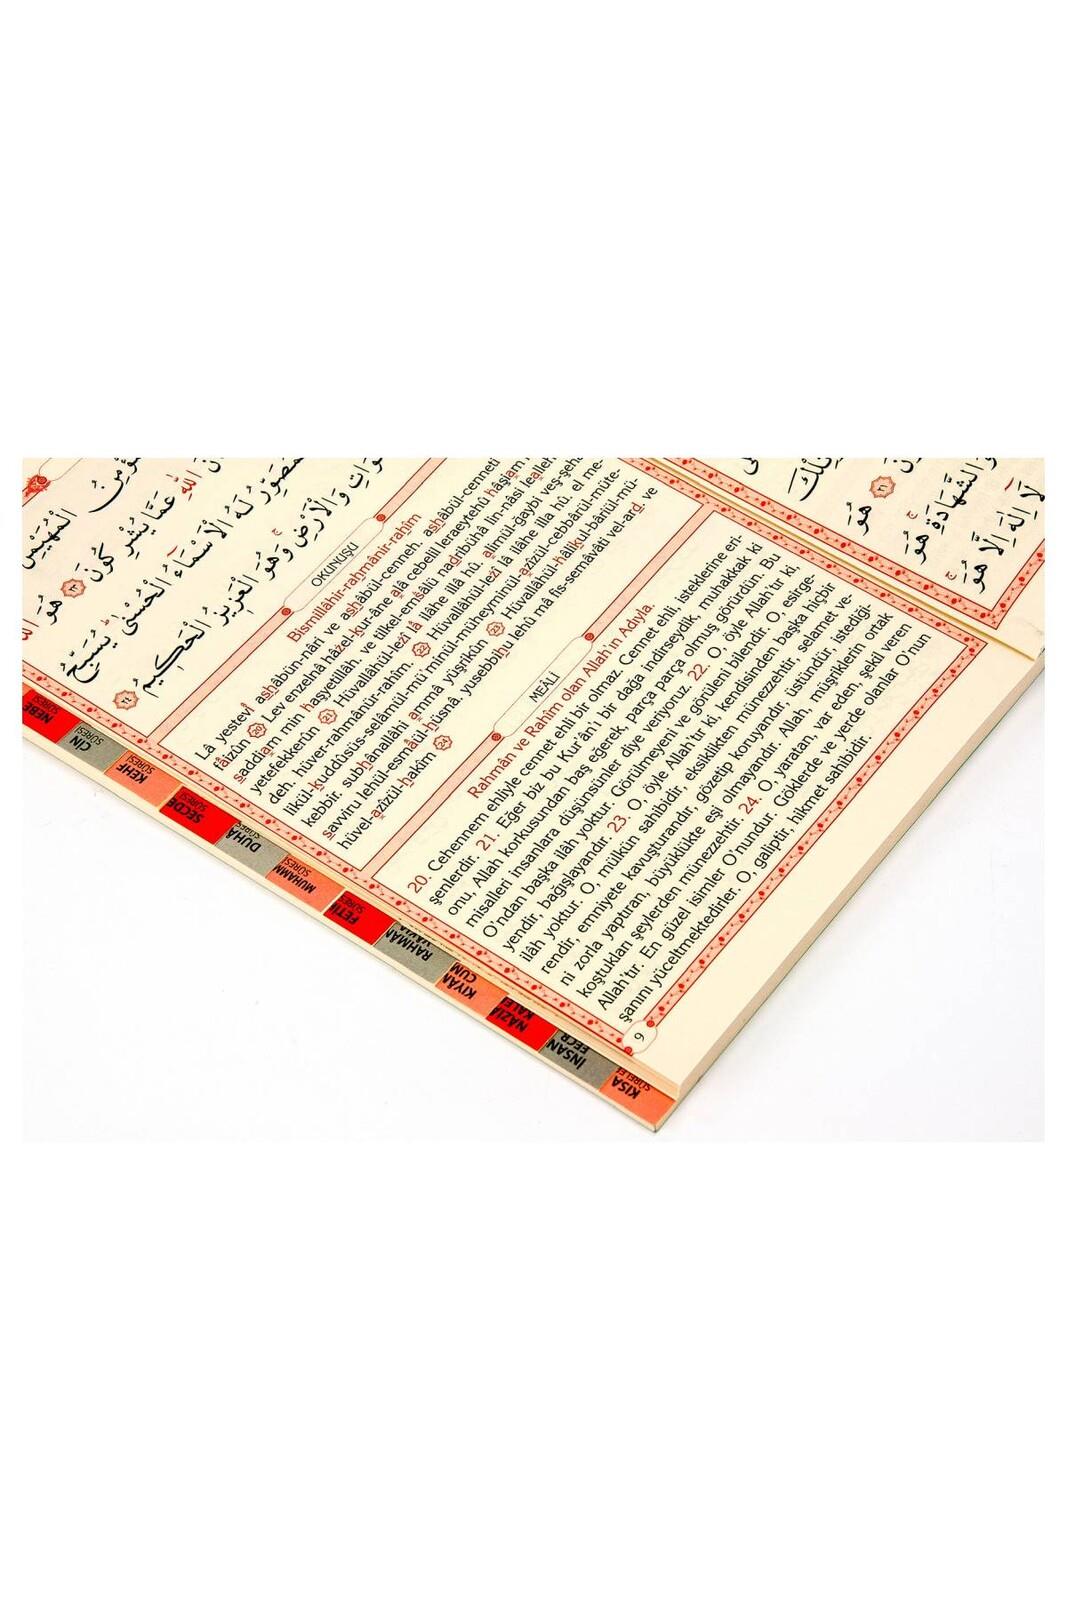 الْمُهَيْمِنُ
عَمَّا يُشْرِكُونَ ﴿٢٣﴾ هُوَ اللّٰهُ
الْمُصَوِّرُ لَهُ الْاَسْمَٓاءُ الْحُسْنٰىۜ يُسَبِّحُ
وَالْاَرْضِۚ وَهُوَ الْعَزِيزُ الْحَكِيمُ ﴿٢٤﴾
OKUNUŞU
Bismillâhir-rahmânir-rahîm
Lâ yestevî ashâbün-nâri ve ashâbül-cenneh. ashâbül-cenneti
fâizûn 20 Lev enzelnâ hâzel-kur-âne alâ cebelil leraeytehû hâşiam
saddiam min haşyetillâh. ve tilkel-emsâlü nadribühâ lin-nâsi leallehüm
yetefekkerûn 21 Hüvallâhül-lezî lâ ilâhe illâ hû. alimül-ğaybi veş-şehâ
deh. hüver-rahmânür-rahîm. 22 Hüvallâhül-lezî lâ ilâhe illa hû. el me-
likül-kuddûsüs-selâmül-mü'minül-müheyminül-azîzül-cebbârül-müte-
kebbir. subhânallâhi ammâ yüşrikûn 23 Hüvallâhül-hâlikul-bâriül-mü-
savviru lehül-esmâül-hüsnâ. yusebbihu lehû mâ fis-semâvâti vel-ard. ve
hüvel-azîzül-hakîm 24
MEÂLİ
Rahmân ve Rahîm olan Allah'ın Adıyla.
20. Cehennem ehliyle cennet ehli bir olmaz. Cennet ehli, isteklerine eri-
şenlerdir. 21. Eğer biz bu Kur'ân'ı bir dağa indirseydik, muhakkak ki
onu, Allah korkusundan baş eğerek, parça parça olmuş görürdün. Bu
misalleri insanlara düşünsünler diye veriyoruz. 22. O, öyle Allah'tır ki,
O'ndan başka ilâh yoktur. Görülmeyeni ve görüleni bilendir. O, esirge-
yendir, bağışlayandır. 23. O, öyle Allah'tır ki, kendisinden başka hiçbir
ilâh yoktur. O, mülkün sahibidir, eksiklikten münezzehtir, selamet ve-
rendir, emniyete kavuşturandır, gözetip koruyandır, üstündür, istediği-
ni zorla yaptıran, büyüklükte eşi olmayandır. Allah, müşriklerin ortak
koştukları şeylerden münezzehtir. 24. O, yaratan, var eden, şekil veren
Allah'tır. En güzel isimler O'nundur. Göklerde ve yerde olanlar O'nun
şanını yüceltmektedirler. O, galiptir, hikmet sahibidir.
9
وَالشَّهَادَةِۚ هُوَ
لَٓا اِلٰهَ اِلَّا هُوَۚ
NEBE
SÛRESİ
CİN
SÛRESİ
KEHF
SÛRESİ
SECDE
SÛRESİ
DUHÂ
MUHAMM
SÛRESİ
FETİH
SÛRESİ
RAHMAN
KIYÂM
CUM
NÂZİA
KALE
İNSAN
FECR
KISA
SÛRELE